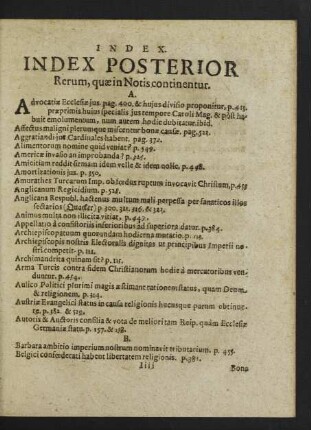 INDEX.
INDEX POSTERIOR
Rerum, quæ in Notis continentur.
A.
Advocatiæ Ecclesiæ jus. pag. 400. & hujus divisio proponitur, p. 413.
præprimis hujus specialis jus tempore Caroli Mag. & post habuit emolumentum, num autem hodie dubitatur. ibid.
Affectus maligni plerumque miscentur bonæ causæ. pag. 522.
Aggratiandi jus Cardinales habent. pag. 372.
Alimentorum nomine quid veniat? p. 549.
Americæ invasio an improbanda? p. 525.
Amnistiam reddit firmam idem velle & idem nolle. p. 448.
Amortizationis jus. p. 350.
Amorathes Turcarum Imp. ob fœdus ruptum invocavit Christum, p. 458
Anglicanum Regicidium. p. 528.
Anglicana Respubl. hactenus multum mali perpessa per fanaticos illius
sectarios (Quaker) p. 300. 311. 316. & 323.
Animus multa non illicita vitiat. p. 447.
Appellatio à consistoriis inferioribus ad superiora datur. p. 384.
Archiepiscopatuum quorundam hodierna mutatio. p. 118.
Archiepiscopis nostris Electoralis dignitas ut principibus Imperii nostri competit. p. 111.
Archimandrita quinam sit? p. 121.
Arma Turcis contra fidem Christianorum hodie à mercatoribus venduntur. p. 454.
Aulico Politici plurimi magis æstimant rationem status, quam Deum
& religionem. p. 324.
Austriæ Evangelici status in causa religionis hucusque parum obtinuere. p. 182. & 519.
Autoris & Austoris consilia & vota de meliori tam Reip. quàm Ecclesiæ
Germaniæ statu. p. 157. & 158.
B.
Barbara ambitio imperium nostrum nominavit tributarium. p. 455.
Belgici confœderati habent libertatem religionis. p. 381.
Iiii
Bona